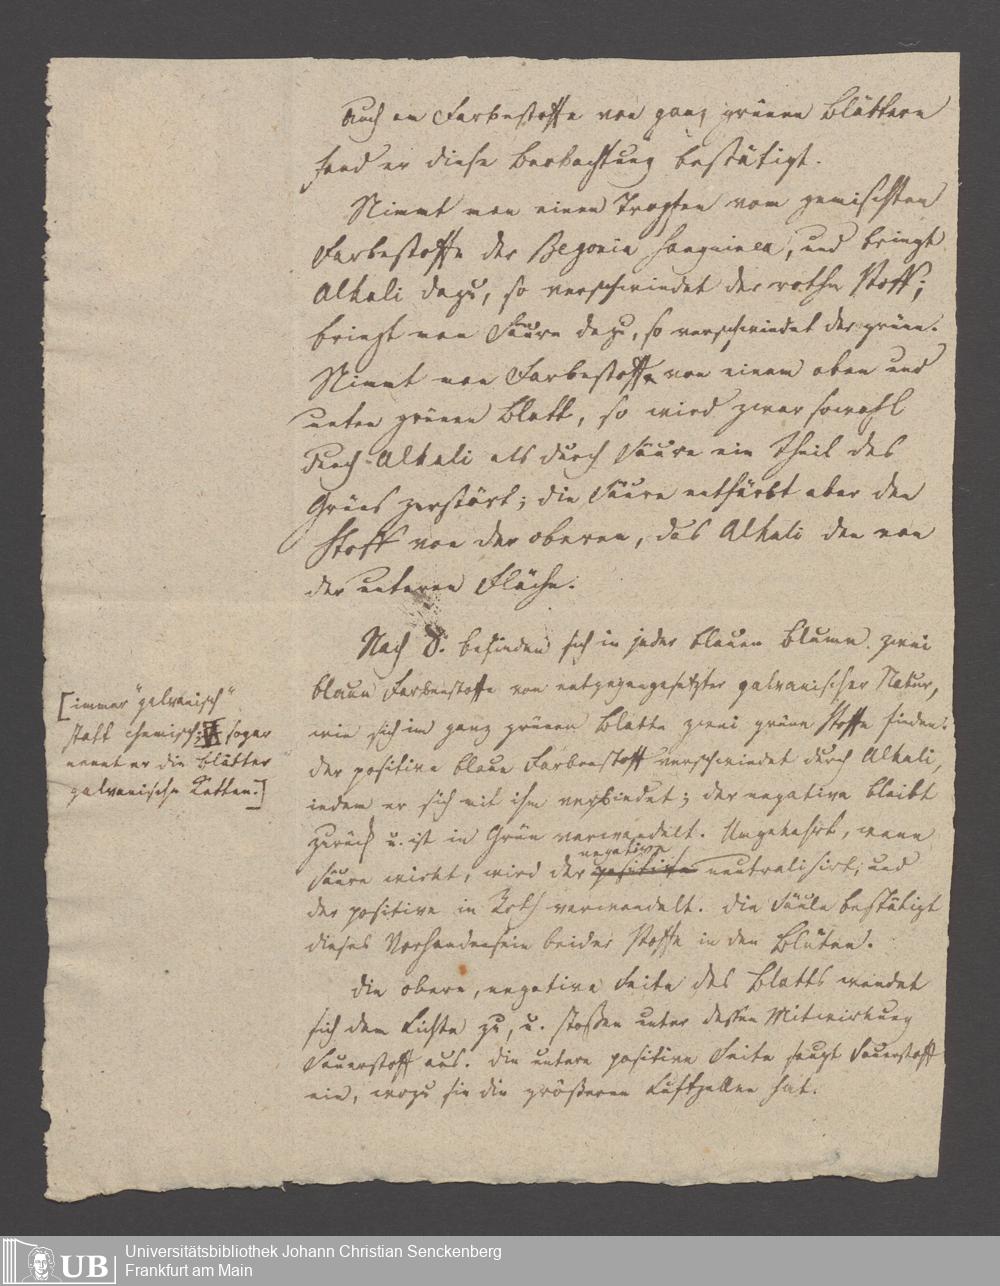 Auch an Farbestoffe von ganz grünen Blättern
fand er diese Beobachtung bestätigt.
Nimmt man einen Tropfen vom gemischten
Farbestoffe der Begonia sanguinea, und bringt
Alkali dazu, so verschwindet der rothe Stoff;
bringt man Säure dazu, so verschwindet der grüne.
Nimmt man Farbestoffe von einem oben und
unten grünen Blatt, so wird zwar sowohl
durch Alkali als durch Säure ein Theil des
Grüns zerstört; die Säure entfärbt aber den
Stoff von der oberen, das Alkali den von
der unteren Fläche.
Nach D. befinden sich in jeder blauen Blume zwei
blaue Farbenstoffe von entgegengesetzter galvanischer Natur,
wie sich im ganz grünen Blatte zwei grüne Stoffe finden.
Der positive blaue Farbenstoff verschwindet durch Alkali,
indem er sich mit ihm verbindet; der negative bleibt
zurück u. ist in Grün verwandelt. Umgekehrt, wenn
Säure wirkt, wird der positive negative neutralisirt, und
der positive in Roth verwandelt. Die Säule bestätigt
dieses Vorhandensein beider Stoffe in den Blüten.
Die obere, negative Seite des Blatts wendet
sich dem Lichte zu, u. stoßen unter dessen Mitwirkung
Sauerstoff aus. Die untere positive Seite saugt Sauerstoff
ein, wozu sie die größeren Luftzellen hat.
[immer "galvanisch"
statt chemisch; sogar
nennt er die Blätter
galvanische Ketten.]
UB
Universitätsbibliothek Johann Christian Senckenberg
Frankfurt am Main